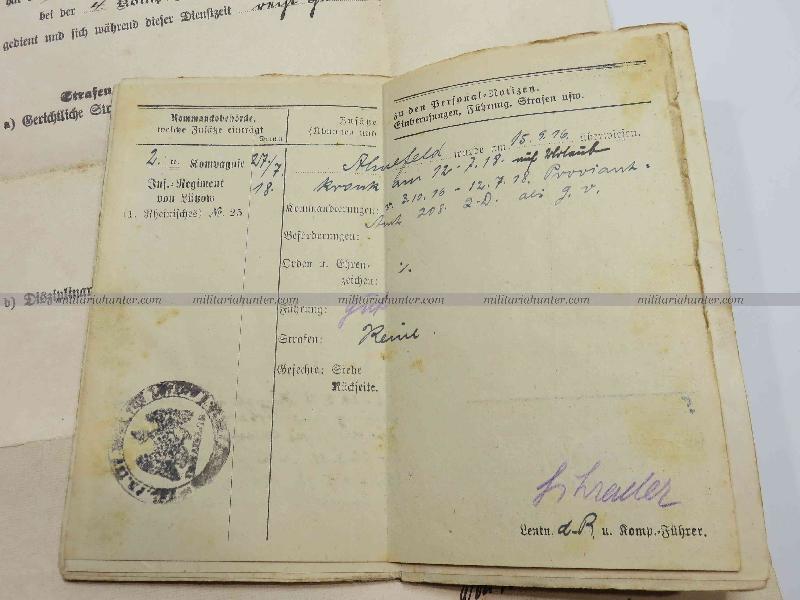 bei der 4. Komp.
gedient und sich während dieser Dienstzeit recht
Strafen
a) Gerichtliche
b) Disziplinar
Kommandobehörde,
welche Zusätze einträgt
Zusätze
zu den Personal-Notizen.
Einberufungen, Führung, Strafen usw.
2. u. Kompagnie 27/7.
18.
Inf.-Regiment
von Lützow
(1. Rheinisches) № 25
wurde am 15.9.16 überwiesen.
krank am 12.7.18. auf Urlaub
Kommandierungen: v. 3.10.16 - 12.7.18. Proviant-
Amt 208. J.-D. als g. v.
Beförderungen:
Orden u. Ehren-
zeichen: ./.
Führung: gut
Strafen: Keine
Gefechte: Siehe
Rückseite.
militariahunter.com militariahunter.com militariahunter.com militariahunter.com militariahunter.com
Schrader
Leutn. d. R. u. Komp.-Führer.